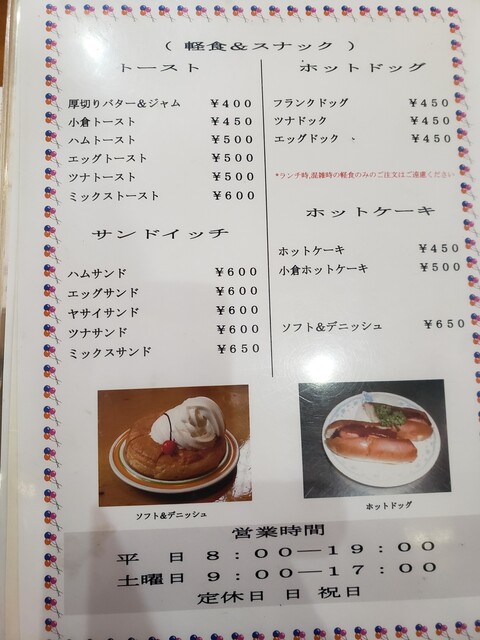 ( 軽食&スナック )
トースト
厚切りバター&ジャム ¥400
小倉トースト ¥450
ハムトースト ¥500
エッグトースト ¥500
ツナトースト ¥500
ミックストースト ¥600
サンドイッチ
ハムサンド ¥600
エッグサンド ¥600
ヤサイサンド ¥600
ツナサンド ¥600
ミックスサンド ¥650
ホットドッグ
フランクドッグ ¥450
ツナドック ¥450
エッグドック 、 ¥450
*ランチ時,混雑時の軽食のみのご注文はご遠慮ください
ホットケーキ
ホットケーキ ¥450
小倉ホットケーキ ¥500
ソフト&デニッシュ ¥650
ソフト&デニッシュ
ホットドッグ
営業時間
平 日 8:00―19:00
土曜日 9:00―17:00
定休日 日 祝日